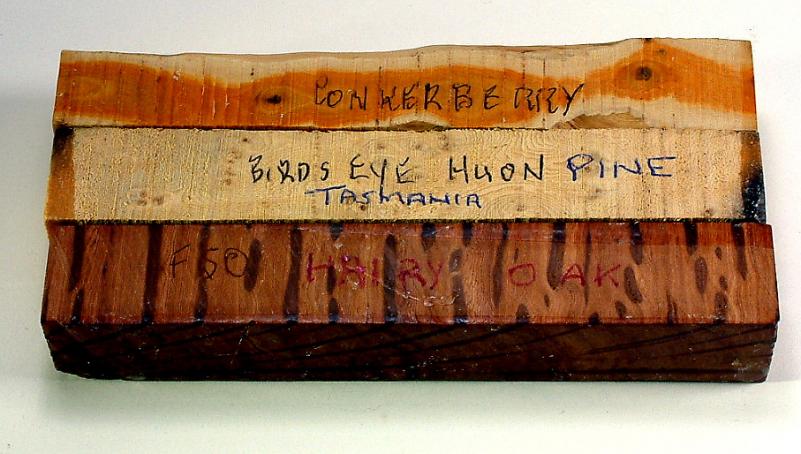 CONKERBERRY
BIRDS EYE HUON PINE
TASMANIA
F50 HAIRY OAK